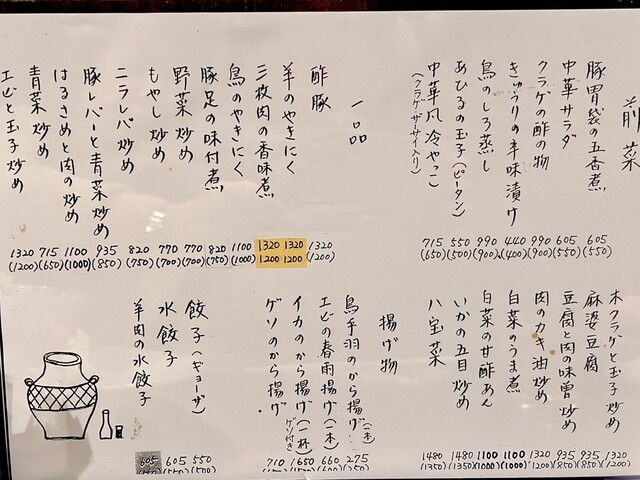 前菜
豚胃袋の五香煮 605 (550)
中華サラダ 605 (550)
クラゲの酢の物 990 (900)
きゅうりの辛味漬け 440 (400)
鳥のしろ蒸し 990 (900)
あひるの玉子(ピータン) 550 (500)
中華風冷やっこ 715 (650)
(クラゲ、ザーサイ入り)
一品
酢豚 1320 (1200)
羊のやきにく 1320 1200
三枚肉の香味煮 1320 1200
鳥のやきにく 1100 (1000)
豚足の味付煮 820 (750)
野菜炒め 770 (700)
もやし炒め 770 (700)
ニラレバ炒め 820 (750)
豚レバーと青菜炒め 935 (850)
はるさめと肉の炒め 1100 (1000)
青菜炒め 715 (650)
エビと玉子炒め 1320 (1200)
木クラゲと玉子炒め 1320
麻婆豆腐 935 (850)
豆腐と肉の味噌炒め 935 (850)
肉のカキ油炒め 1320 (1200)
白菜のうま煮 1100 (1000)
白菜の甘酢あん 1100 (1000)
いかの五目炒め 1480 (1350)
八宝菜 1480 (1350)
揚げ物
鳥手羽のから揚げ(一本) 275
エビの春雨揚げ(一本) 660
イカのから揚げ(一杯) 1650
ゲソ付き
ゲソのから揚げ 710
餃子(ギョーザ) 550
水餃子 605
羊肉の水餃子 605